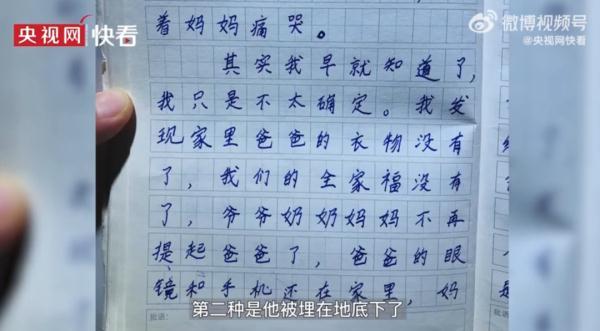 央视网快看
微博视频号
@央视网快看
着妈妈痛哭。
其实我早就知道了,
我只是不太确定。我发
现家里爸爸的衣物没有
了,我们的全家福没有
了,爷爷奶奶妈妈不再
提起爸爸了,爸爸的眼
镜和手机还在家里,妈
第二种是他被埋在地底下了
批语: